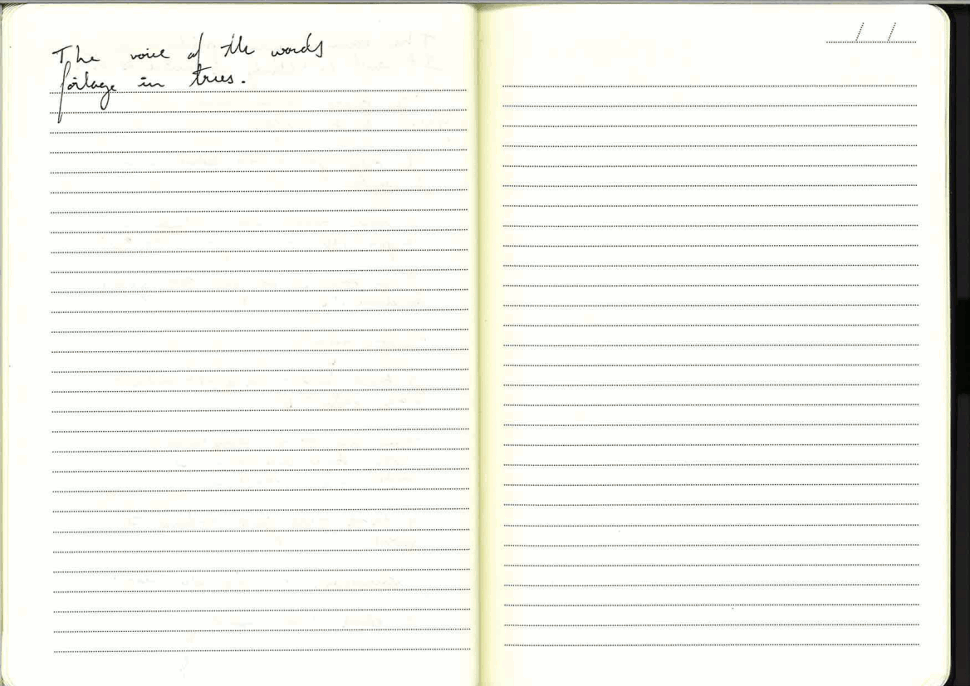 The voice of the words
foilage in trees.